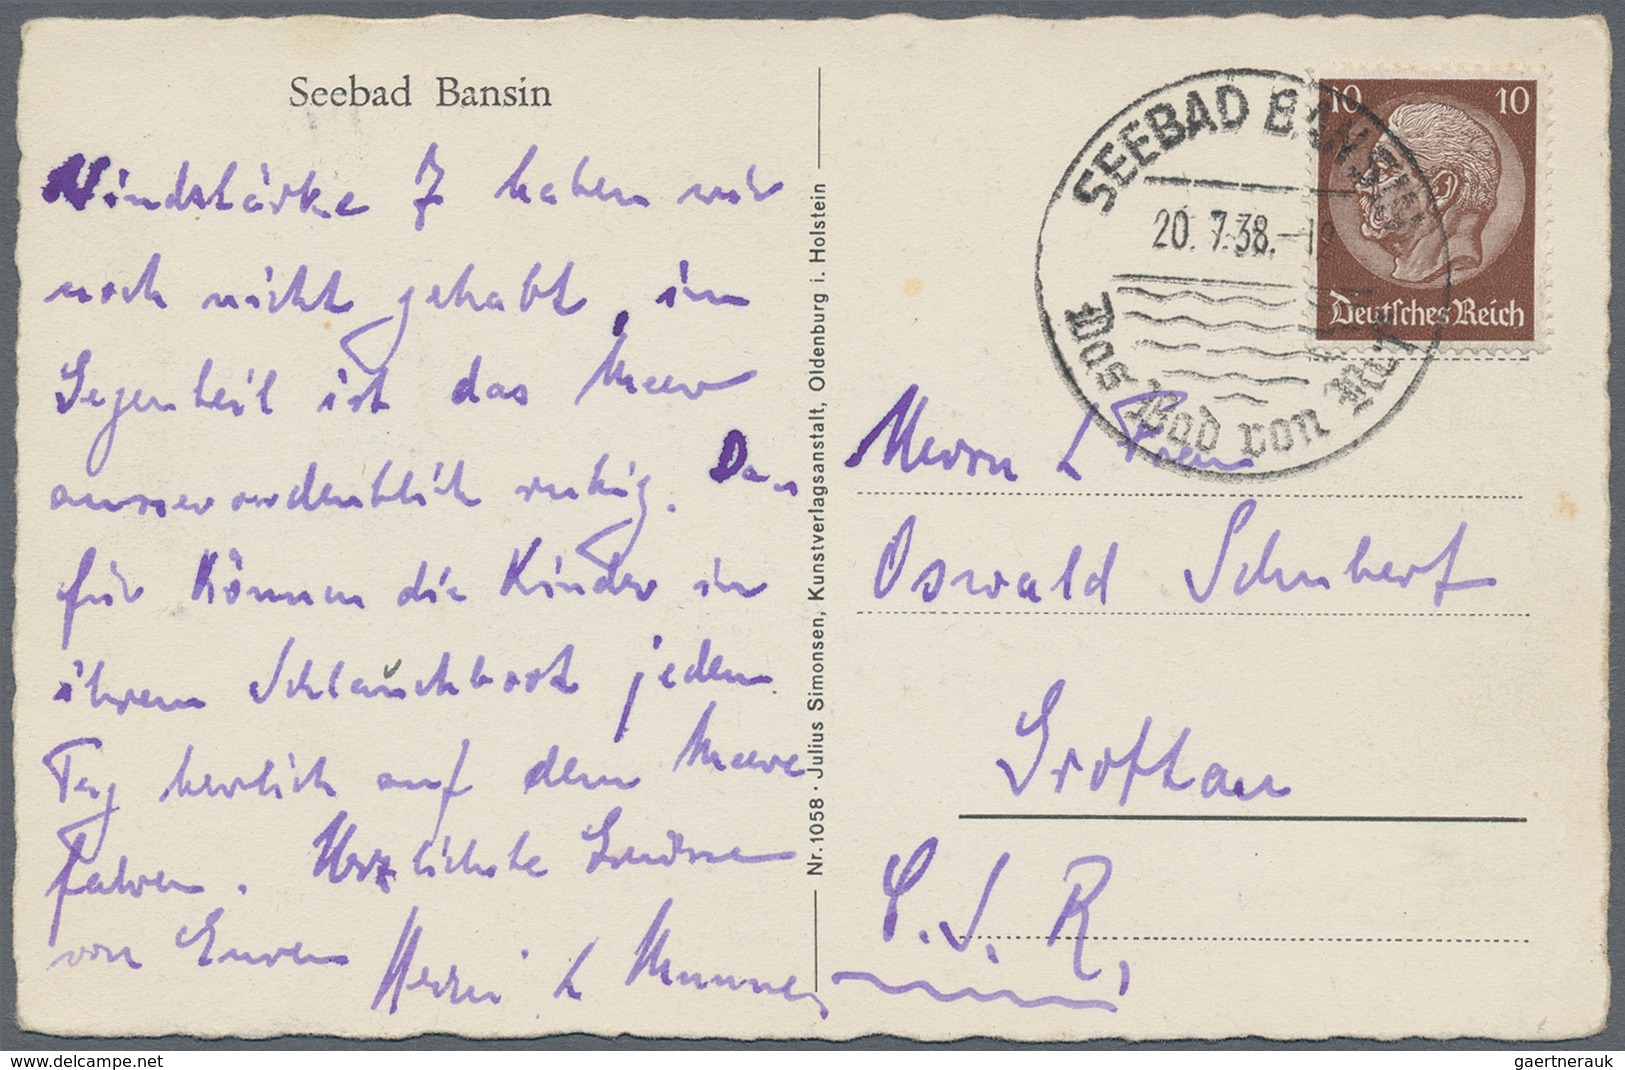 Seebad Bansin
Windstärke 7 haben wir
noch nicht gehabt, im
Gegenteil ist das Meer
ausserordentlich ruhig. Da-
für können die Kinder in
ihrem Schlauchboot jeden
Tag herrlich auf dem Meere
fahren. Herzlichste Grüsse
von Euren
Nr. 1058 · Julius Simonsen, Kunstverlagsanstalt, Oldenburg i. Holstein
SEEBAD BANSIN
20.7.38.-1
Das Bad von
10 10
Deutsches Reich
Herrn & Frau
Oswald Schubert
Grottau
Č.S.R.
www.delcampe.net
gaertnerauk